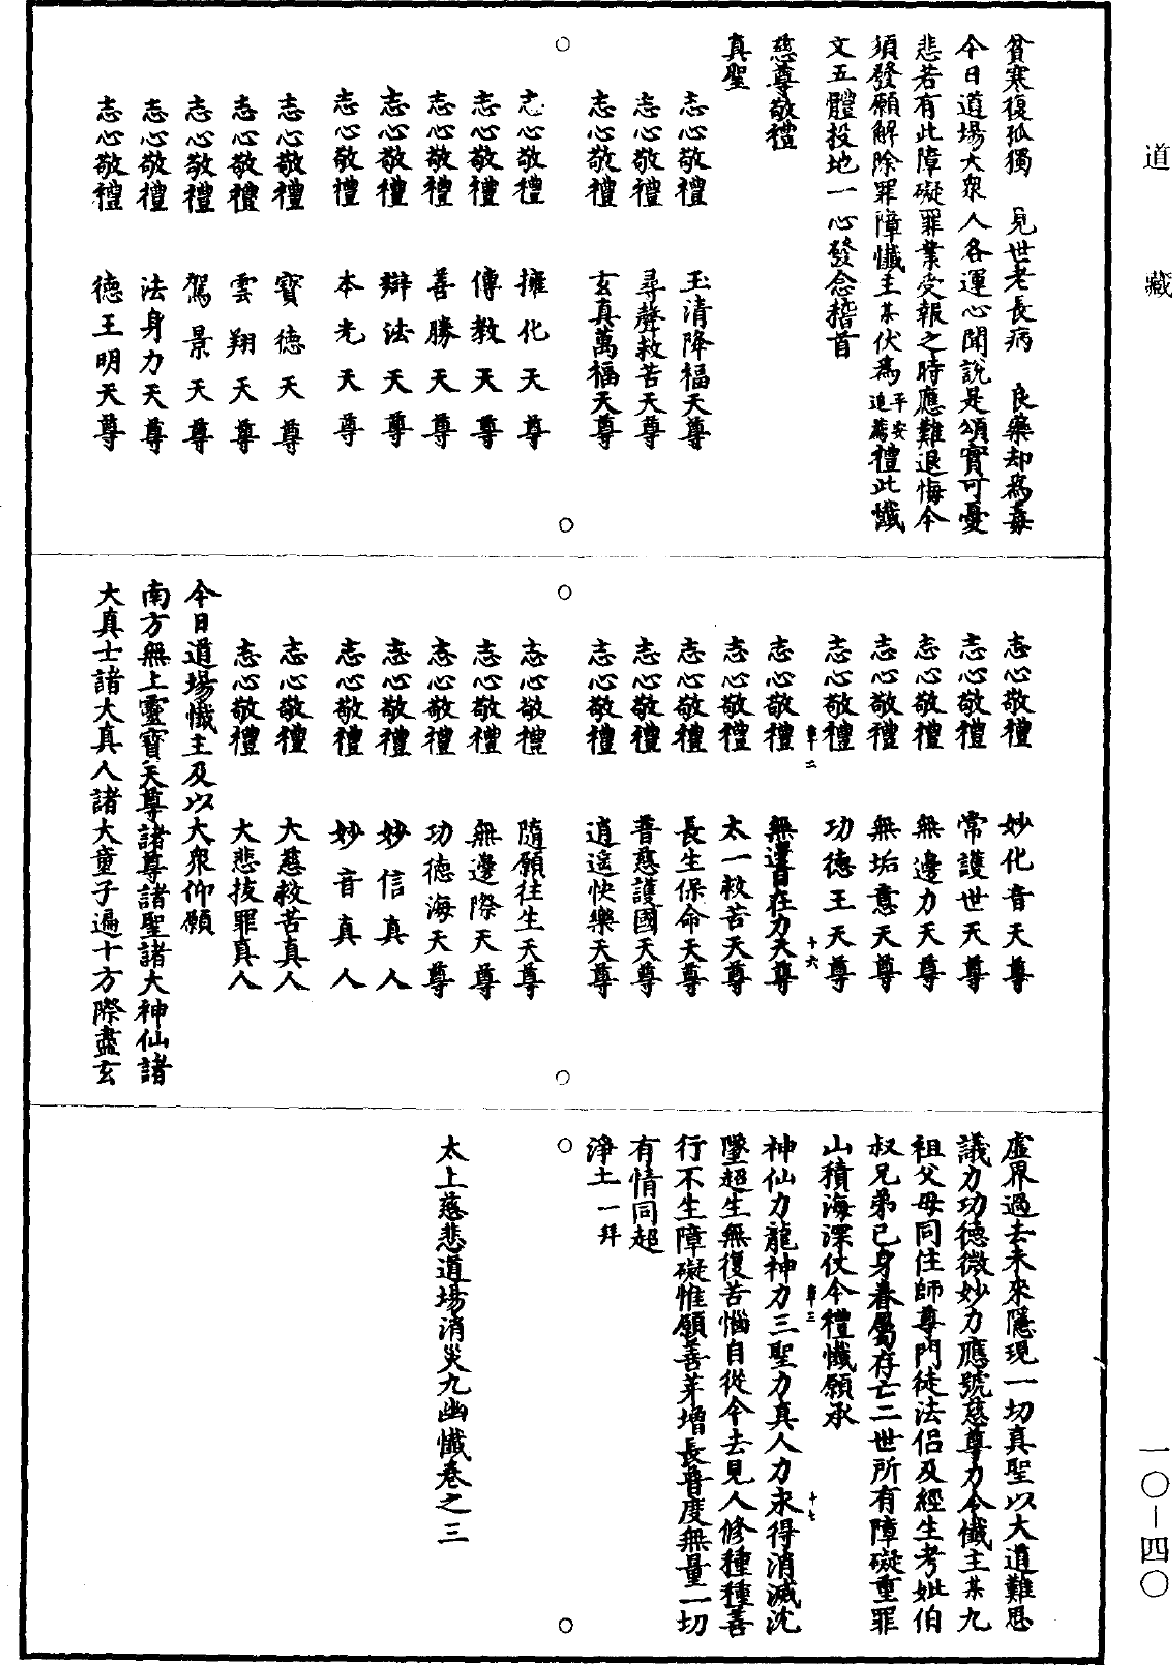 道藏
貧寒復孤獨　見世老長病　良藥却為毒
今日道場大衆人各運心聞說是頌實可憂
悲若有此障礙罪業受報之時應難退悔今
須發願解除罪障懺主某伏為平安追薦禮此懺
文五體投地一心發念稽首
慈尊敬禮
真聖
志心敬禮　玉清降福天尊
志心敬禮　尋聲救苦天尊
志心敬禮　玄真萬福天尊
志心敬禮　擁化天尊
志心敬禮　傳教天尊
志心敬禮　善勝天尊
志心敬禮　辯法天尊
志心敬禮　本光天尊
志心敬禮　寶德天尊
志心敬禮　雲翔天尊
志心敬禮　駕景天尊
志心敬禮　法身力天尊
志心敬禮　德王明天尊
志心敬禮　妙化音天尊
志心敬禮　常護世天尊
志心敬禮　無邊力天尊
志心敬禮　無垢意天尊
志心敬禮　功德王天尊
章二　十六
志心敬禮　無邊自在力天尊
志心敬禮　太一救苦天尊
志心敬禮　長生保命天尊
志心敬禮　普慈護國天尊
志心敬禮　逍遙快樂天尊
志心敬禮　隨願往生天尊
志心敬禮　無邊際天尊
志心敬禮　功德海天尊
志心敬禮　妙信真人
志心敬禮　妙音真人
志心敬禮　大慈救苦真人
志心敬禮　大悲拔罪真人
今日道場懺主及以大衆仰願
南方無上靈寶天尊諸尊諸聖諸大神仙諸
大真士諸大真人諸大童子遍十方際盡玄
虛界過去未來隱現一切真聖以大道難思
議力功德微妙力應號慈尊力令懺主某九
祖父母同住師尊門徒法侶及經生考妣伯
叔兄弟已身眷屬存亡二世所有障礙重罪
山積海深仗今禮懺願承
章三　十七
神仙力龍神力三聖力真人力求得消滅沈
墜超生無復苦惱自從今去見人修種種善
行不生障礙惟願善芽增長普度無量一切
有情同超
淨土一拜
太上慈悲道場消災九幽懺卷之三
一〇－四〇